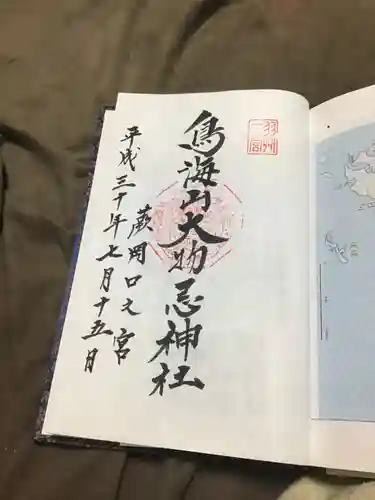 羽州
一宮
鳥海山大物忌神社
蕨岡口之宮
平成三十年七月十五日